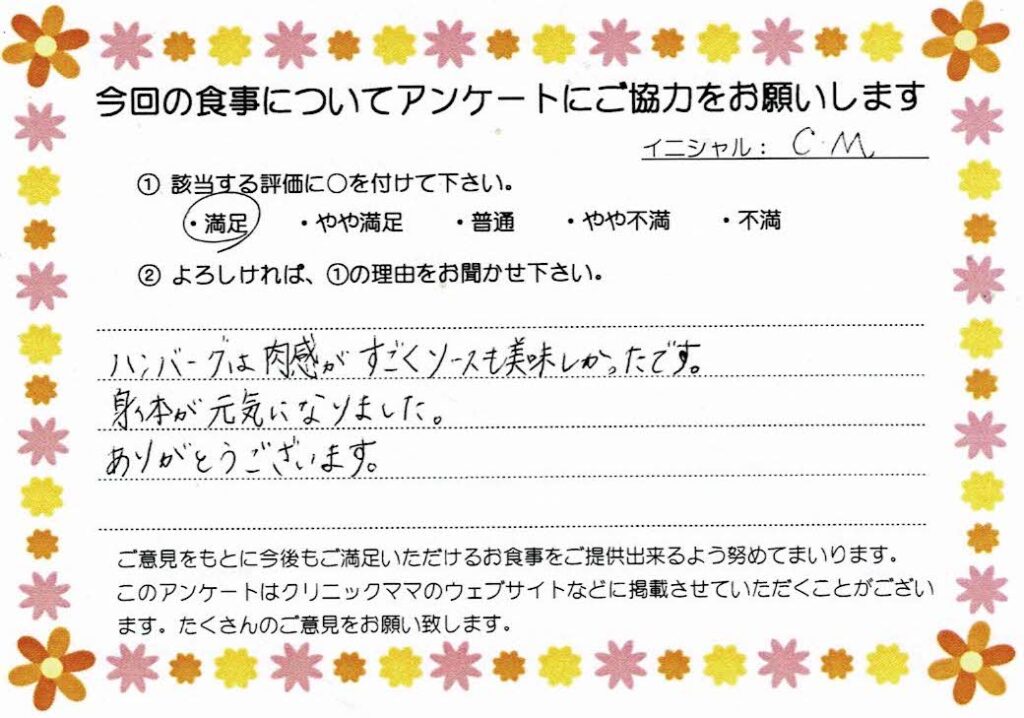 今回の食事についてアンケートにご協力をお願いします
イニシャル： C・M
① 該当する評価に○を付けて下さい。
・満足 ・やや満足 ・普通 ・やや不満 ・不満
② よろしければ、①の理由をお聞かせ下さい。
ハンバーグは肉感がすごくソースも美味しかったです。
身体が元気になりました。
ありがとうございます。
ご意見をもとに今後もご満足いただけるお食事をご提供出来るよう努めてまいります。
このアンケートはクリニックママのウェブサイトなどに掲載させていただくことがござい
ます。たくさんのご意見をお願い致します。